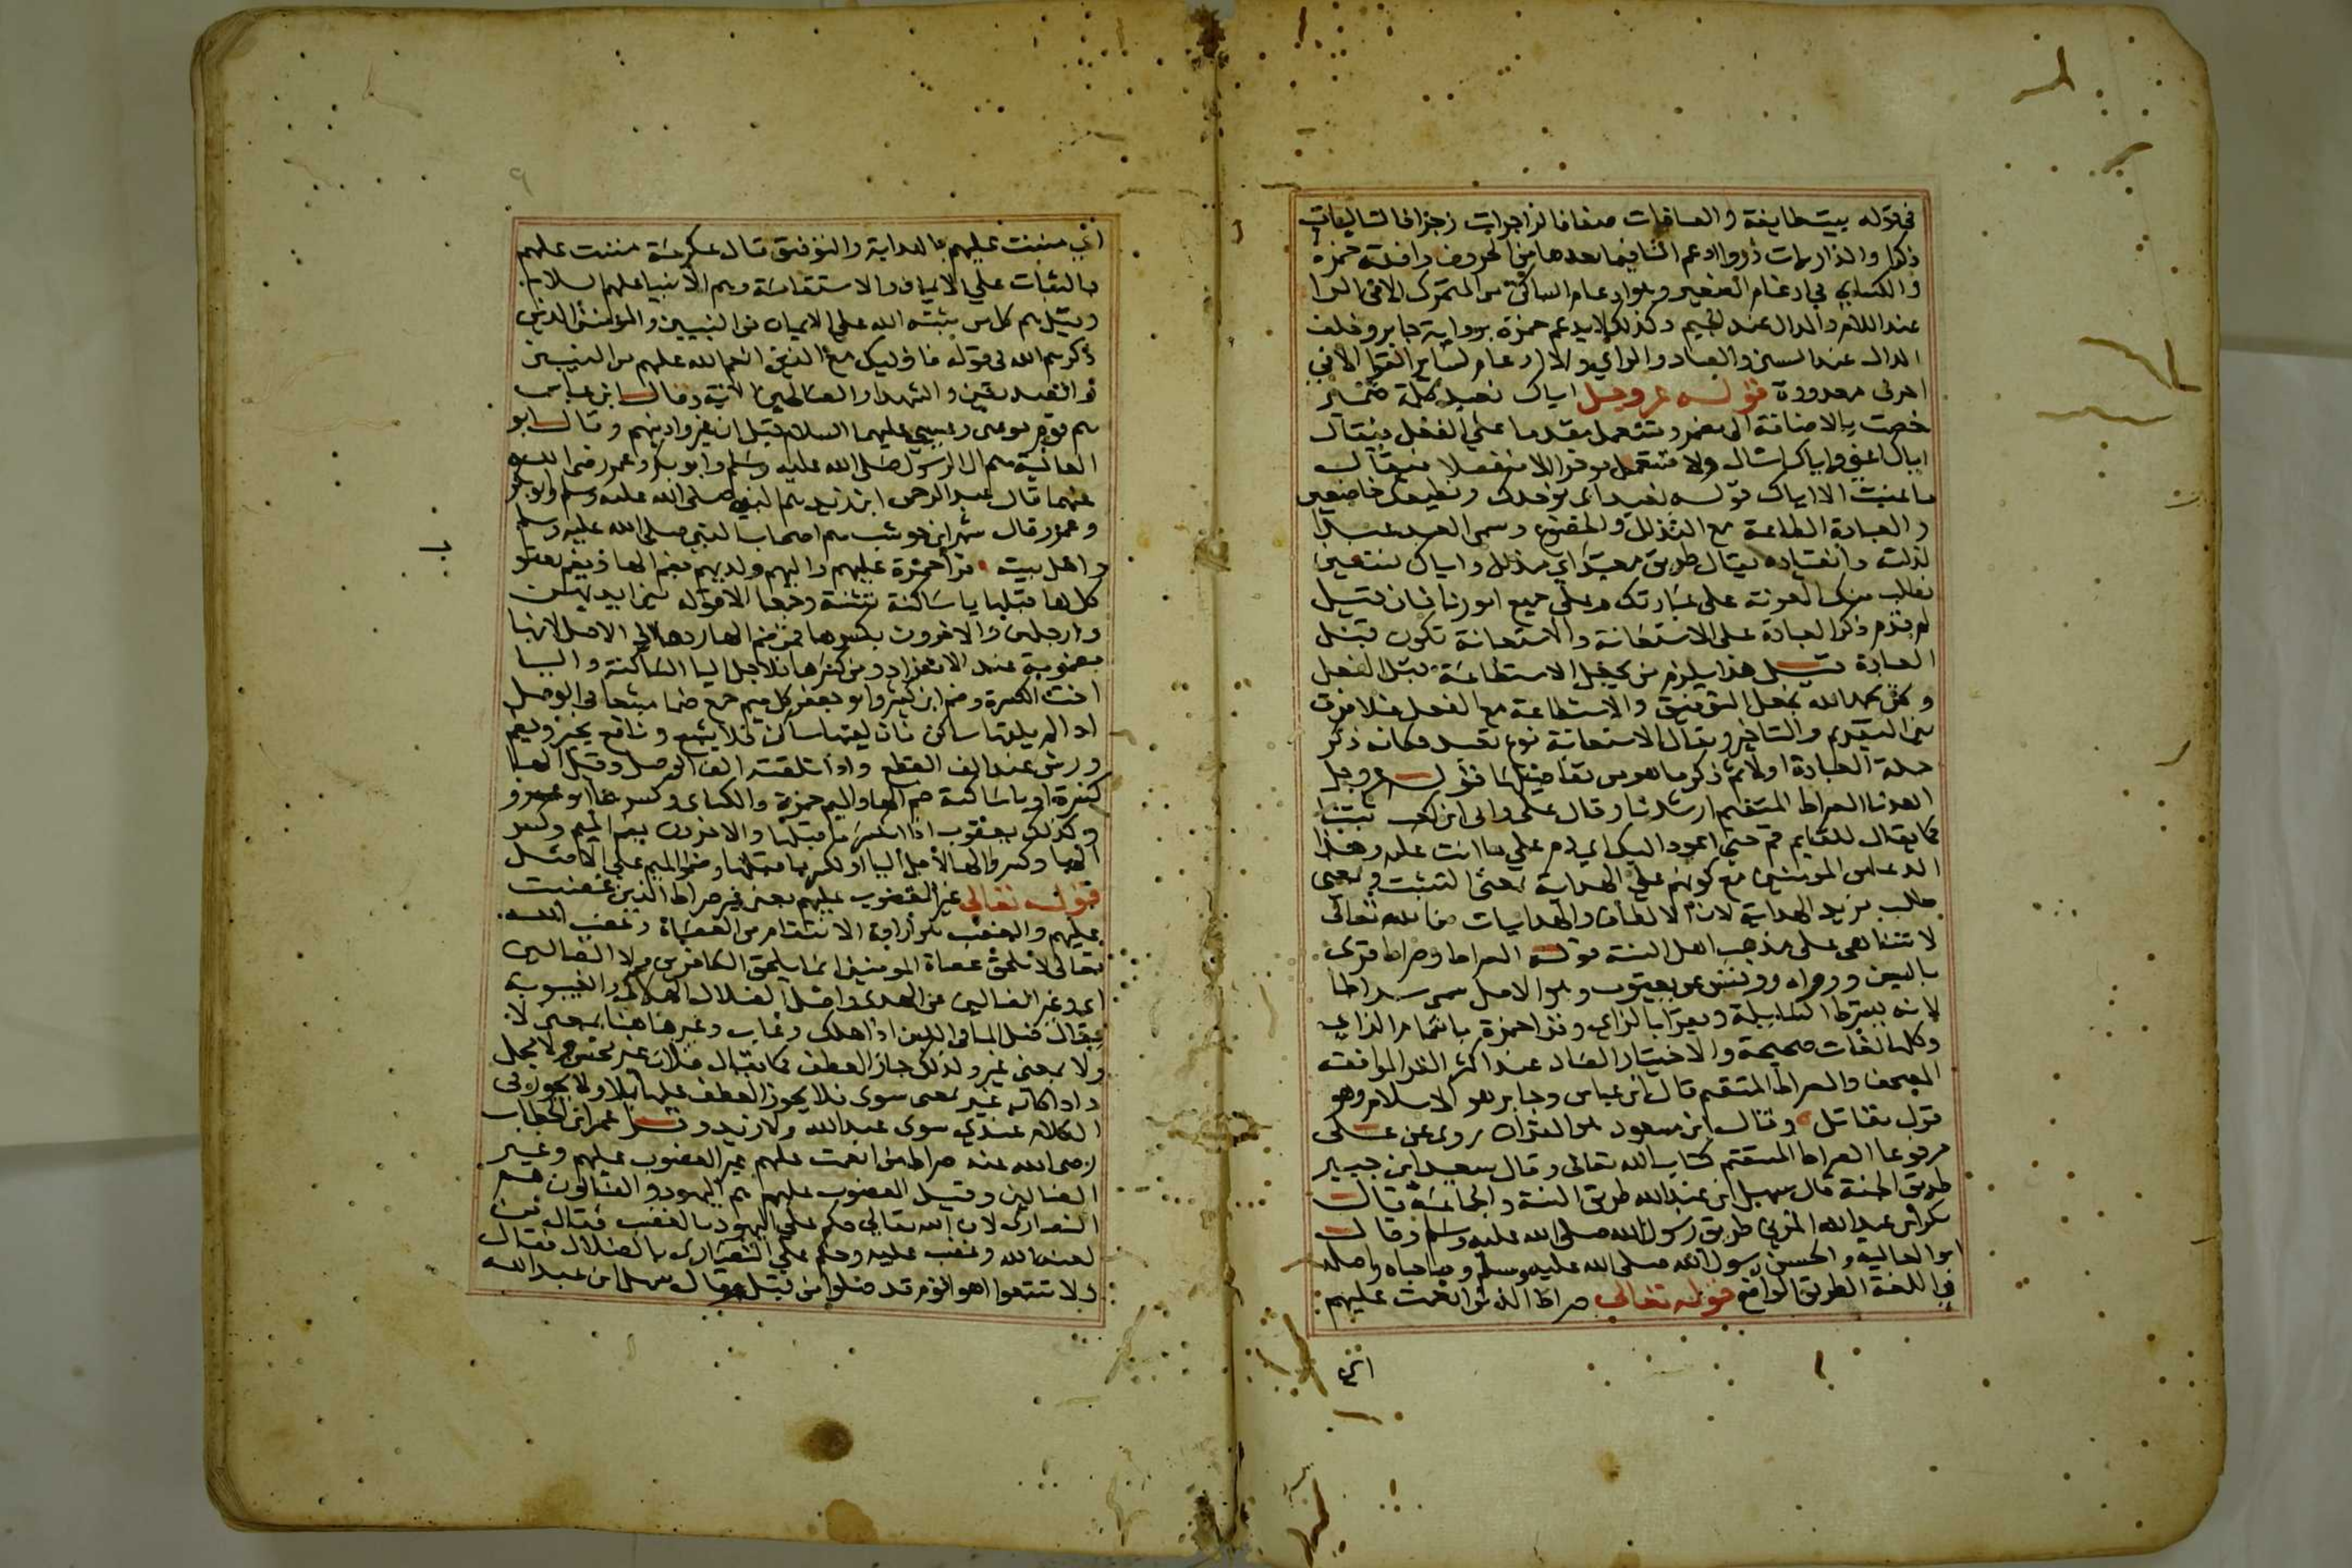 في قوله بيت طايفة والصافات صفا فالزاجرات زجرا فالتاليات
ذكرا والذاريات ذروا ادغم التا فيما بعدها من الحروف وافقه حمزة
والكسايي في ادغام الصغير وهو ادغام الساكن من المتحرك الا في الرا
عند اللام والدال عند الجيم وكذلك لا يدغم حمزة برواية جابر وخلف
الدال عند السين والصاد والزاي ولا ادغام لسائر القرا الا في
احرف معدودة قوله عز وجل اياك نعبد كلمة ضمير
خصت بالاضافة الى المضمر وتستعمل مقدما على الفعل فيقال
اياك اعني واياك اسال ولا تستعمل موخرا الا منفصلا فيقال
ما عنيت الا اياك قوله نعبد اي نوحدك ونطيعك خاضعين
والعبادة الطاعة مع التذلل والخضوع وسمي العبد عبدا
لذلته وانقياده يقال طريق معبد اي مذلل واياك نستعين
نطلب منك المعونة على عبادتك وعلى جميع امورنا فان قيل
لم قدم ذكر العبادة على الاستعانة والاستعانة تكون قبل
العبادة قيل هذا يلزم من يجعل الاستطاعة قبل الفعل
ونحن بحمد الله نجعل التوفيق والاستطاعة مع الفعل فلا فرق
بين التقديم والتاخير ويقال الاستعانة نوع تعبد فكانه ذكر
جملة العبادة اولا ثم ذكر ما هو من تفاصيلها قوله عز وجل
اهدنا الصراط المستقيم ارشدنا وقال علي وابي ابن كعب ثبتنا
كما يقال للقايم قم حتى اعود اليك اي دم على ما انت عليه وهذا
الدعا من المومنين مع كونهم على الهداية بمعنى التثبت وبمعنى
طلب مزيد الهداية لان الالطاف والهدايات من الله تعالى
لا تتناهى على مذهب اهل السنة قوله الصراط وصراط قرى
بالسين ورواه رويس عن يعقوب وهو الاصل سمي سراطا
لانه يسترط السابلة ويقرا بالزاي وقرا حمزة باشمام الزاي
وكلها لغات صحيحة والاختيار الصاد عند اكثر القرا لموافقة
المصحف والصراط المستقيم قال ابن عباس وجابر هو الاسلام وهو
قول مقاتل وقال ابن مسعود هو القران روي عن علي
مرفوعا الصراط المستقيم كتاب الله تعالى وقال سعيد ابن جبير
طريق الجنة قال سهل ابن عبد الله طريق السنة والجماعة قال
بكر ابن عبد الله المزني طريق رسول الله صلى الله عليه وسلم وقال
ابو العالية والحسن رسول الله صلى الله عليه وسلم وصاحباه واصله
في اللغة الطريق الواضح قوله تعالى صراط الذين انعمت عليهم
اي
اي مننت عليهم بالهداية والتوفيق قال عكرمة مننت عليهم
بالثبات على الايمان والاستقامة وهم الانبيا عليهم السلام
وقيل هم كل من ثبته الله على الايمان من النبيين والمومنين الذين
ذكرهم الله في قوله فاوليك مع الذين انعم الله عليهم من النبيين
والصديقين والشهدا والصالحين الاية وقال ابن عباس
هم قوم موسى وعيسى عليهما السلام قبل ان غيروا دينهم وقال ابو
العالية هم ال الرسول صلى الله عليه وسلم وابو بكر وعمر رضي الله
عنهما قال عبد الرحمن ابن زيد هم النبي صلى الله عليه وسلم وابو بكر
وعمر وقال شهر ابن حوشب هم اصحاب النبي صلى الله عليه وسلم
واهل بيته قرا حمزة عليهم واليهم ولديهم بضم الها ويضم يعقوب
كل ها قبلها يا ساكنة تثنية وجمعا الا قوله بين ايديهن
وارجلهن والاخرون بكسرها فمن ضم الها ردها الى الاصل لانها
مضمومة عند الانفراد ومن كسرها فلاجل اليا الساكنة واليا
اخت الكسرة وضم ابن كثير وابو جعفر كل ميم جمع ضما مشبعا في الوصل
اذا لم يلقها ساكن فان لقيها ساكن فلا يشبع ونافع يخير ويضم
ورش عند الف القطع واذا تلقته الف الوصل وقبل الها
كسرة او يا ساكنة ضم الها والميم حمزة والكسايي وكسرهما ابو عمرو
وكذلك يعقوب اذا انكسر ما قبلها والاخرون بضم الميم وكسر
الها وكسروا الها لاجل اليا او لكسر ما قبلها وضموا الميم على الاصل
قوله تعالى غير المغضوب عليهم يعني غير صراط الذين غضبت
عليهم والغضب هو ارادة الانتقام من العصاة وغضب الله
تعالى لا يلحق عصاة المومنين انما يلحق الكافرين ولا الضالين
اي وغير الضالين عن الهدى واصل الضلال الهلاك والغيبوبة
يقال ضل الما في اللبن اذا هلك وغاب وغير هاهنا بمعنى لا
ولا بمعنى غير ولذلك جاز العطف كما يقال فلان غير محسن ولا مجمل
واذا كان غير بمعنى سوى فلا يجوز العطف عليها بلا ولا يجوز في
الكلام عندي سوى عبد الله ولا زيد وقرا عمر ابن الخطاب
رضي الله عنه صراط من انعمت عليهم غير المغضوب عليهم وغير
الضالين وقيل المغضوب عليهم هم اليهود والضالون هم
النصارى لان الله تعالى حكم على اليهود بالغضب فقال من
لعنه الله وغضب عليه وحكم على النصارى بالضلال فقال
ولا تتبعوا اهوا قوم قد ضلوا من قبل وقال سهل ابن عبد الله